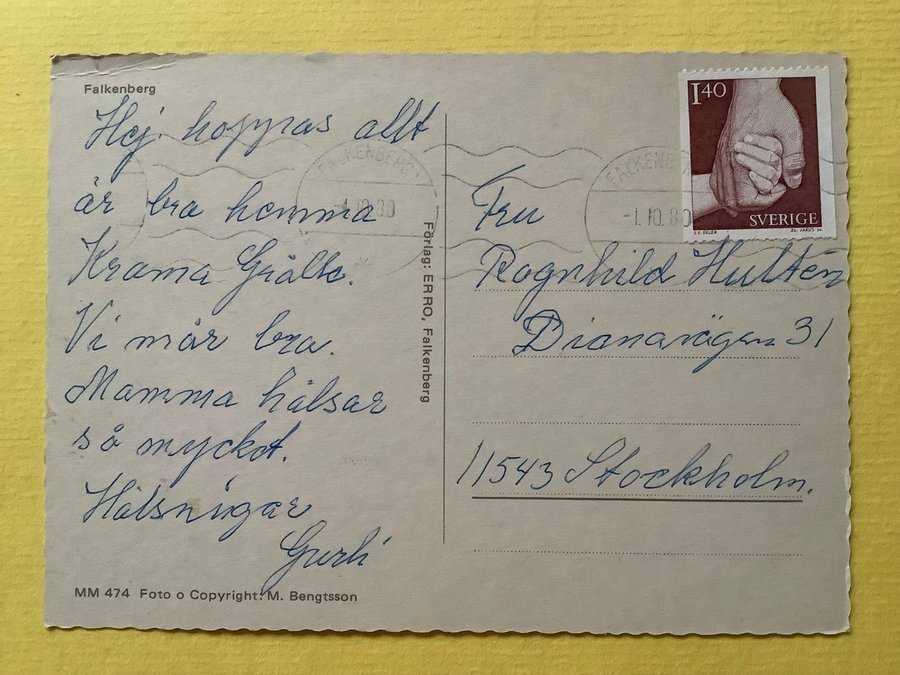 Falkenberg
Hej hoppas allt
är bra hemma
Krama Grålle.
Vi mår bra.
Mamma hälsar
så mycket.
Hälsnigar
Gurli
MM 474 Foto o Copyright: M. Bengtsson
Förlag: ERRO, Falkenberg
FALKENBERG
-1.10.80
FALKENBERG
-1.10.80
1 40
SVERIGE
Fru
Ragnhild Hultén
Dianavägen 31
11543 Stockholm.